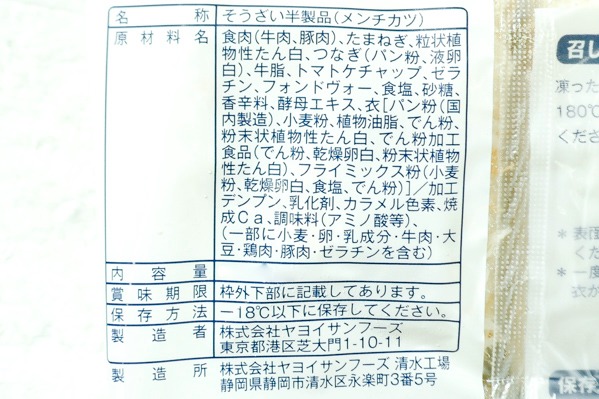 名称 そうざい半製品(メンチカツ)
原材料名 食肉(牛肉、豚肉)、たまねぎ、粒状植
物性たん白、つなぎ(パン粉、液卵
白)、牛脂、トマトケチャップ、ゼラ
チン、フォンドヴォー、食塩、砂糖、
香辛料、酵母エキス、衣[パン粉(国
内製造)、小麦粉、植物油脂、でん粉、
粉末状植物性たん白、でん粉加工
食品(でん粉、乾燥卵白、粉末状植物
性たん白)、フライミックス粉(小麦
粉、乾燥卵白、食塩、でん粉)]/加工
デンプン、乳化剤、カラメル色素、焼
成Ca、調味料(アミノ酸等)、
(一部に小麦・卵・乳成分・牛肉・大
豆・鶏肉・豚肉・ゼラチンを含む)
内容量
賞味期限 枠外下部に記載してあります。
保存方法 −18℃以下に保存してください。
製造者 株式会社ヤヨイサンフーズ
東京都港区芝大門1-10-11
製造所 株式会社ヤヨイサンフーズ 清水工場
静岡県静岡市清水区永楽町3番5号
召し
凍った
180℃
くださ
*表面
くだ
*一度
衣が
保存